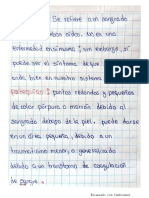 Se refiere a un sangrado
ambos oídos. No es una
enfermedad en si misma, sin embargo, si
puede ser el síntoma de que
anda bien en nuestro sistema
petequias: puntos redondos y pequeños
de color púrpura o marrón debido al
sangrado debajo de la piel. puede darse
en un área pequeña, debido a un
traumatismo menor, o generalizada
debido a un transtorno de coagulación
de sangre.
Escaneado con CamScanner